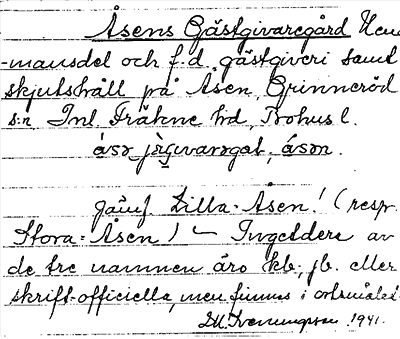 Åsens Gästgivaregård Hem-
-mansdel och f.d. gästgiveri samt
skjutshåll på Åsen, Grinneröd
s:n Inl. Fräkne hd, Bohusl.
jämf. Lilla-Åsen! (resp.
Stora-Åsen) – Ingetdera av
de tre namnen äro kb., jb. eller
skrift-officiella, men finnas i ortsmålet.
1941.